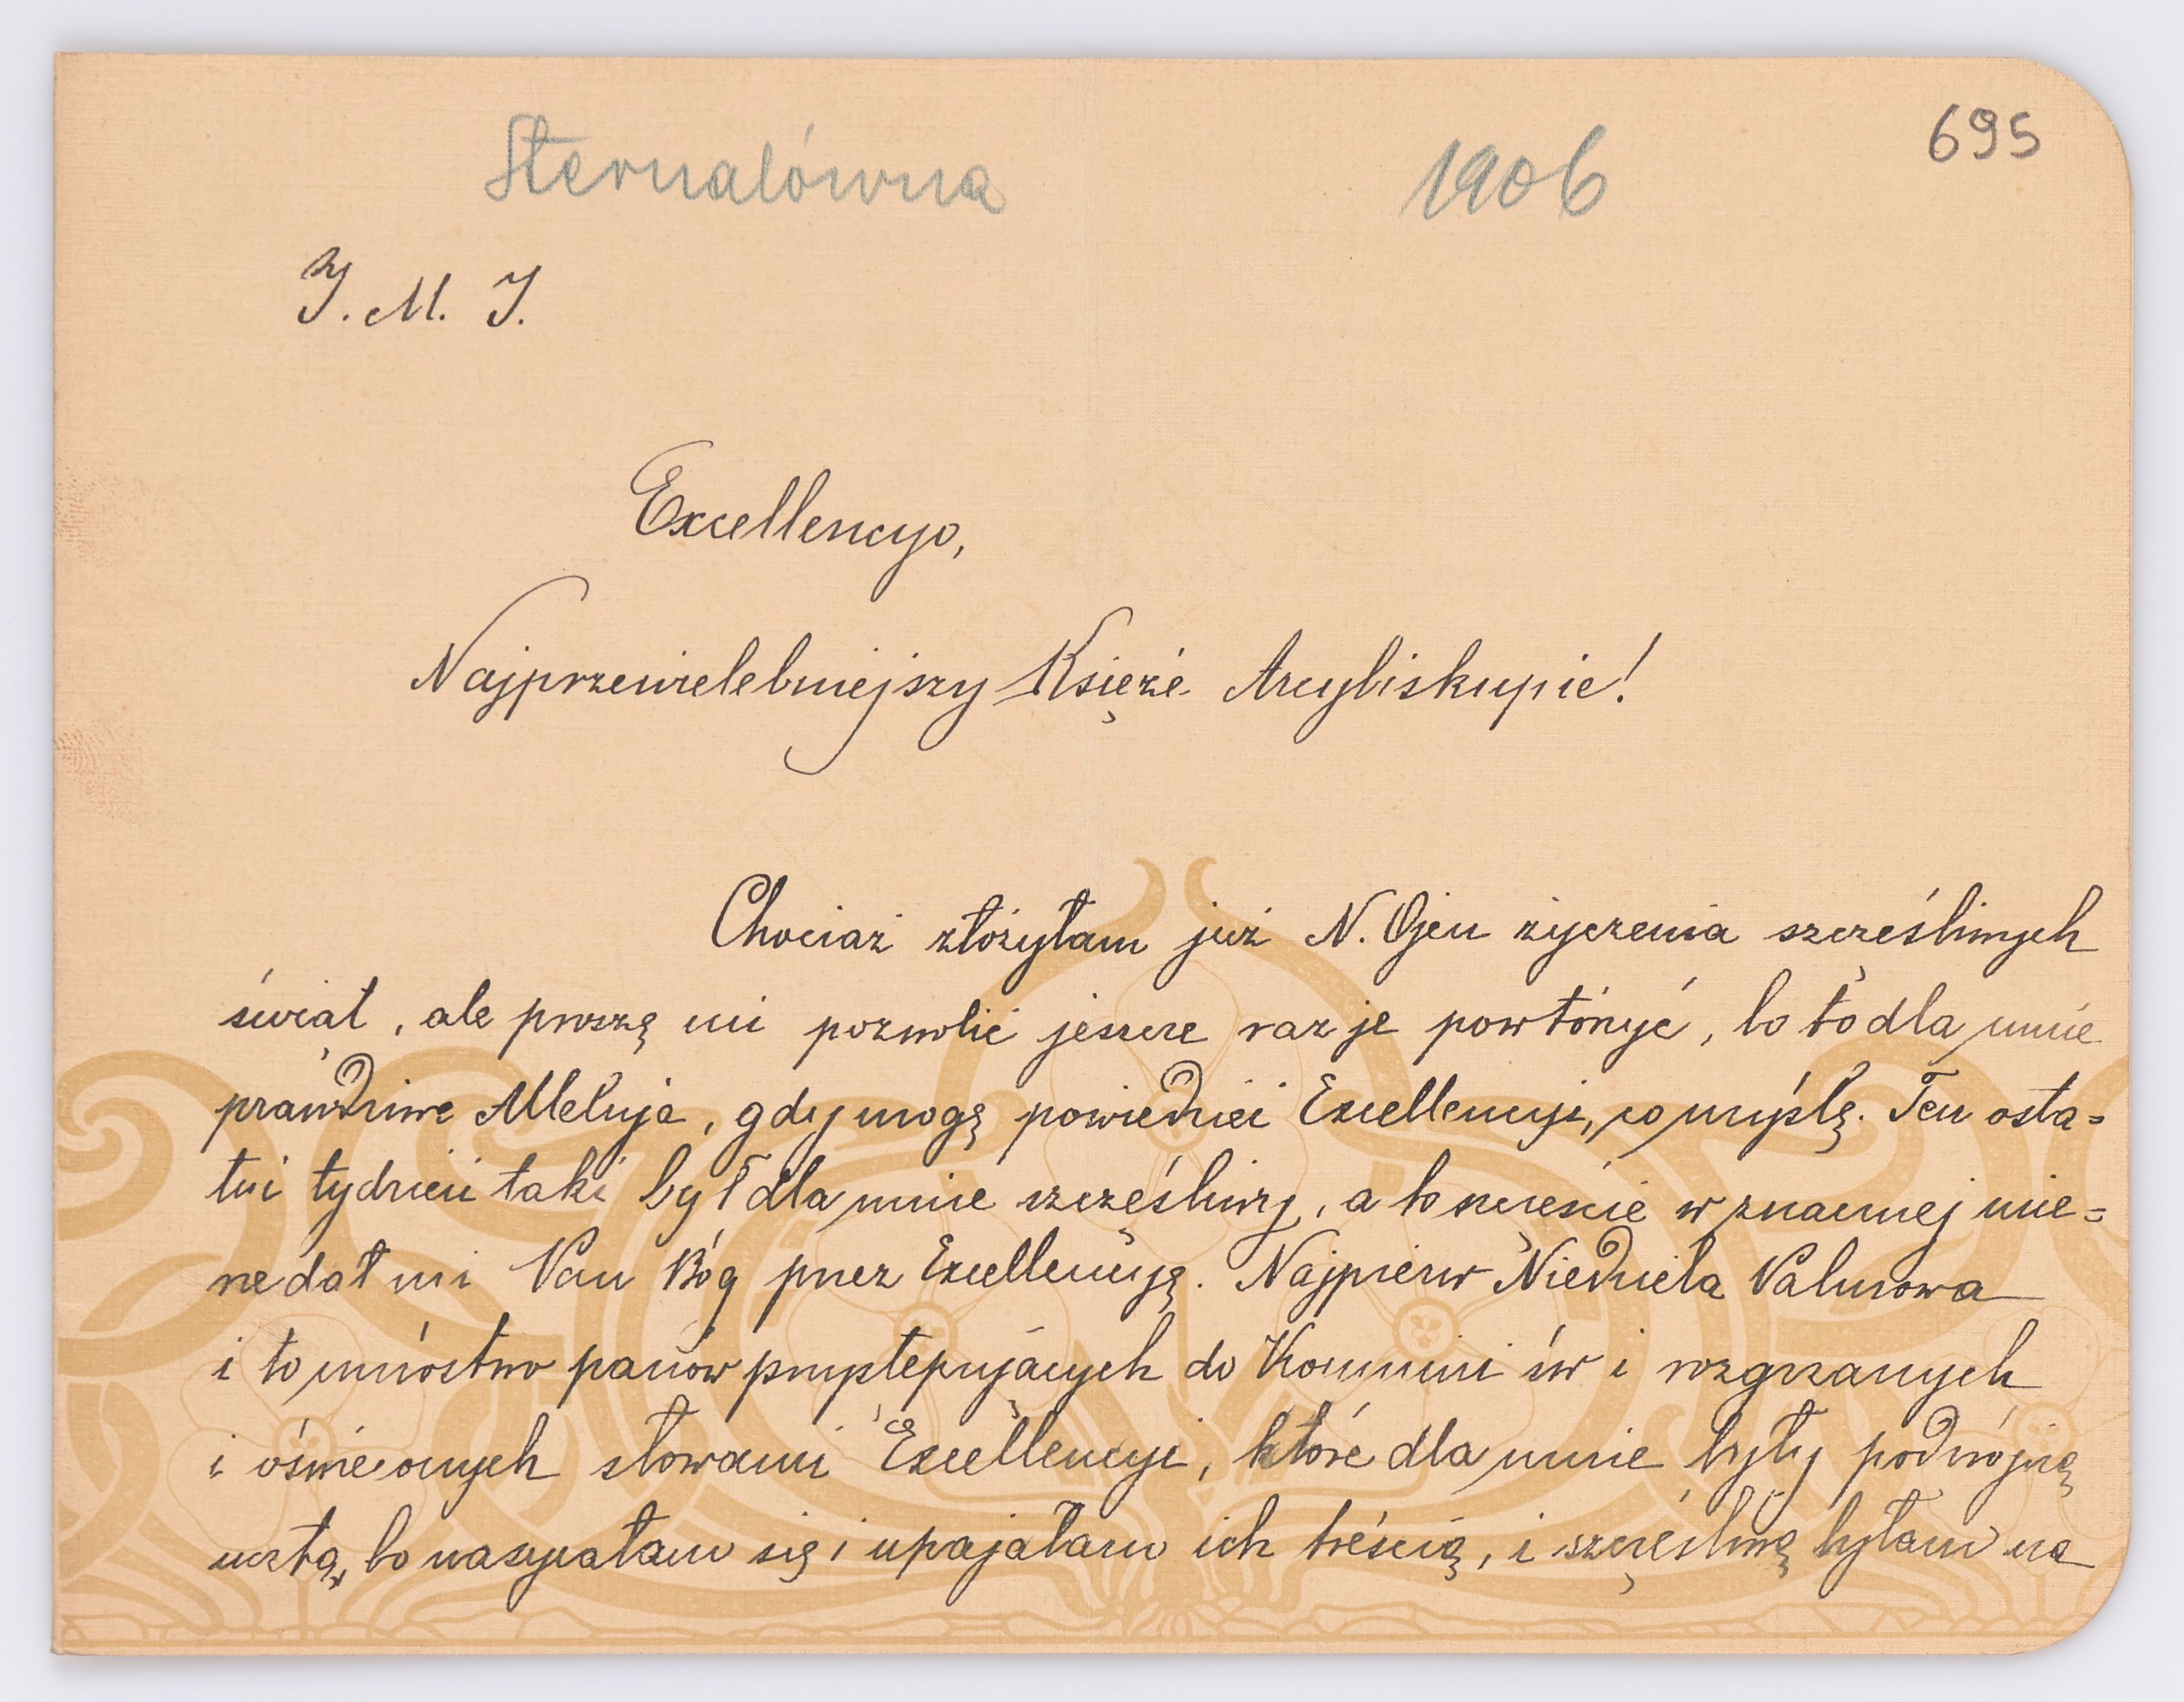 Sternalówna 1906 695
J. M. J.
Excellencyo,
Najprzewielebniejszy Księże Arcybiskupie!
Chociaż złożyłam już N. Ojcu życzenia szczęśliwych
świąt, ale proszę mi pozwolić jeszcze raz je powtórzyć, bo to dla mnie
prawdziwe Alleluja, gdy mogę powiedzieć Excellencyi, co myślę. Ten osta=
tni tydzień taki był dla mnie szczęśliwy, a to szczęście w znacznej mie=
rze dał mi Pan Bóg przez Excellencyę. Najpierw Niedziela Palmowa
i to mnóstwo panów przystępujących do Kommuni św i rozgrzanych
i oświeconych słowami Excellencyi, które dla mnie były podwójną
ucztą, bo nasycałam się i upajałam ich treścią, i szczęśliwą byłam na